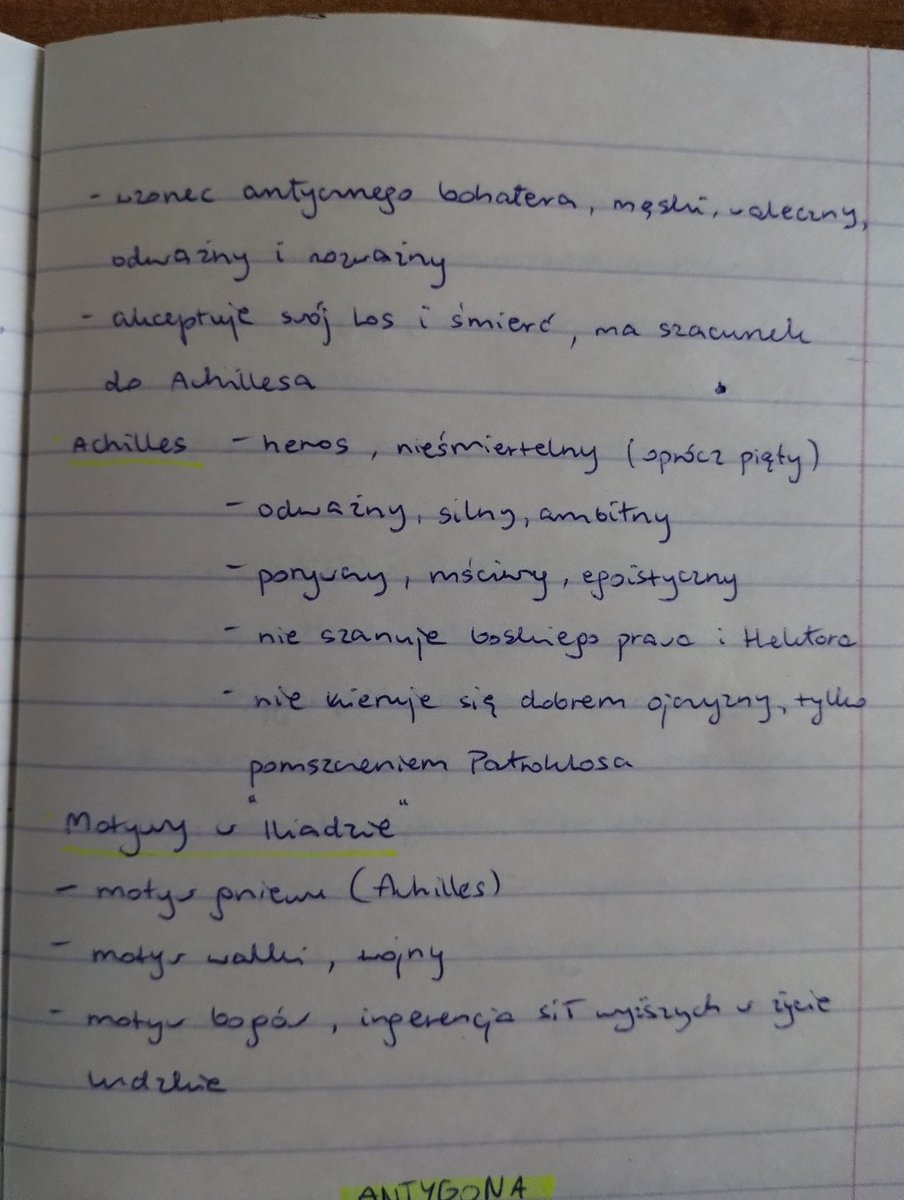 - wzorzec antycznego bohatera, męski, waleczny,
odważny i rozważny
- akceptuje swój los i śmierć, ma szacunek
do Achillesa
Achilles - heros, nieśmiertelny (oprócz pięty)
- odważny, silny, ambitny
- porywczy, mściwy, egoistyczny
- nie szanuje boskiego prawa i Hektora
- nie kieruje się dobrem ojczyzny, tylko
pomszczeniem Patroklosa
Motywy w "Iliadzie"
- motyw gniewu (Achilles)
- motyw walki, wojny
- motyw bogów, ingerencja sił wyższych w życie
ludzkie
ANTYGONA